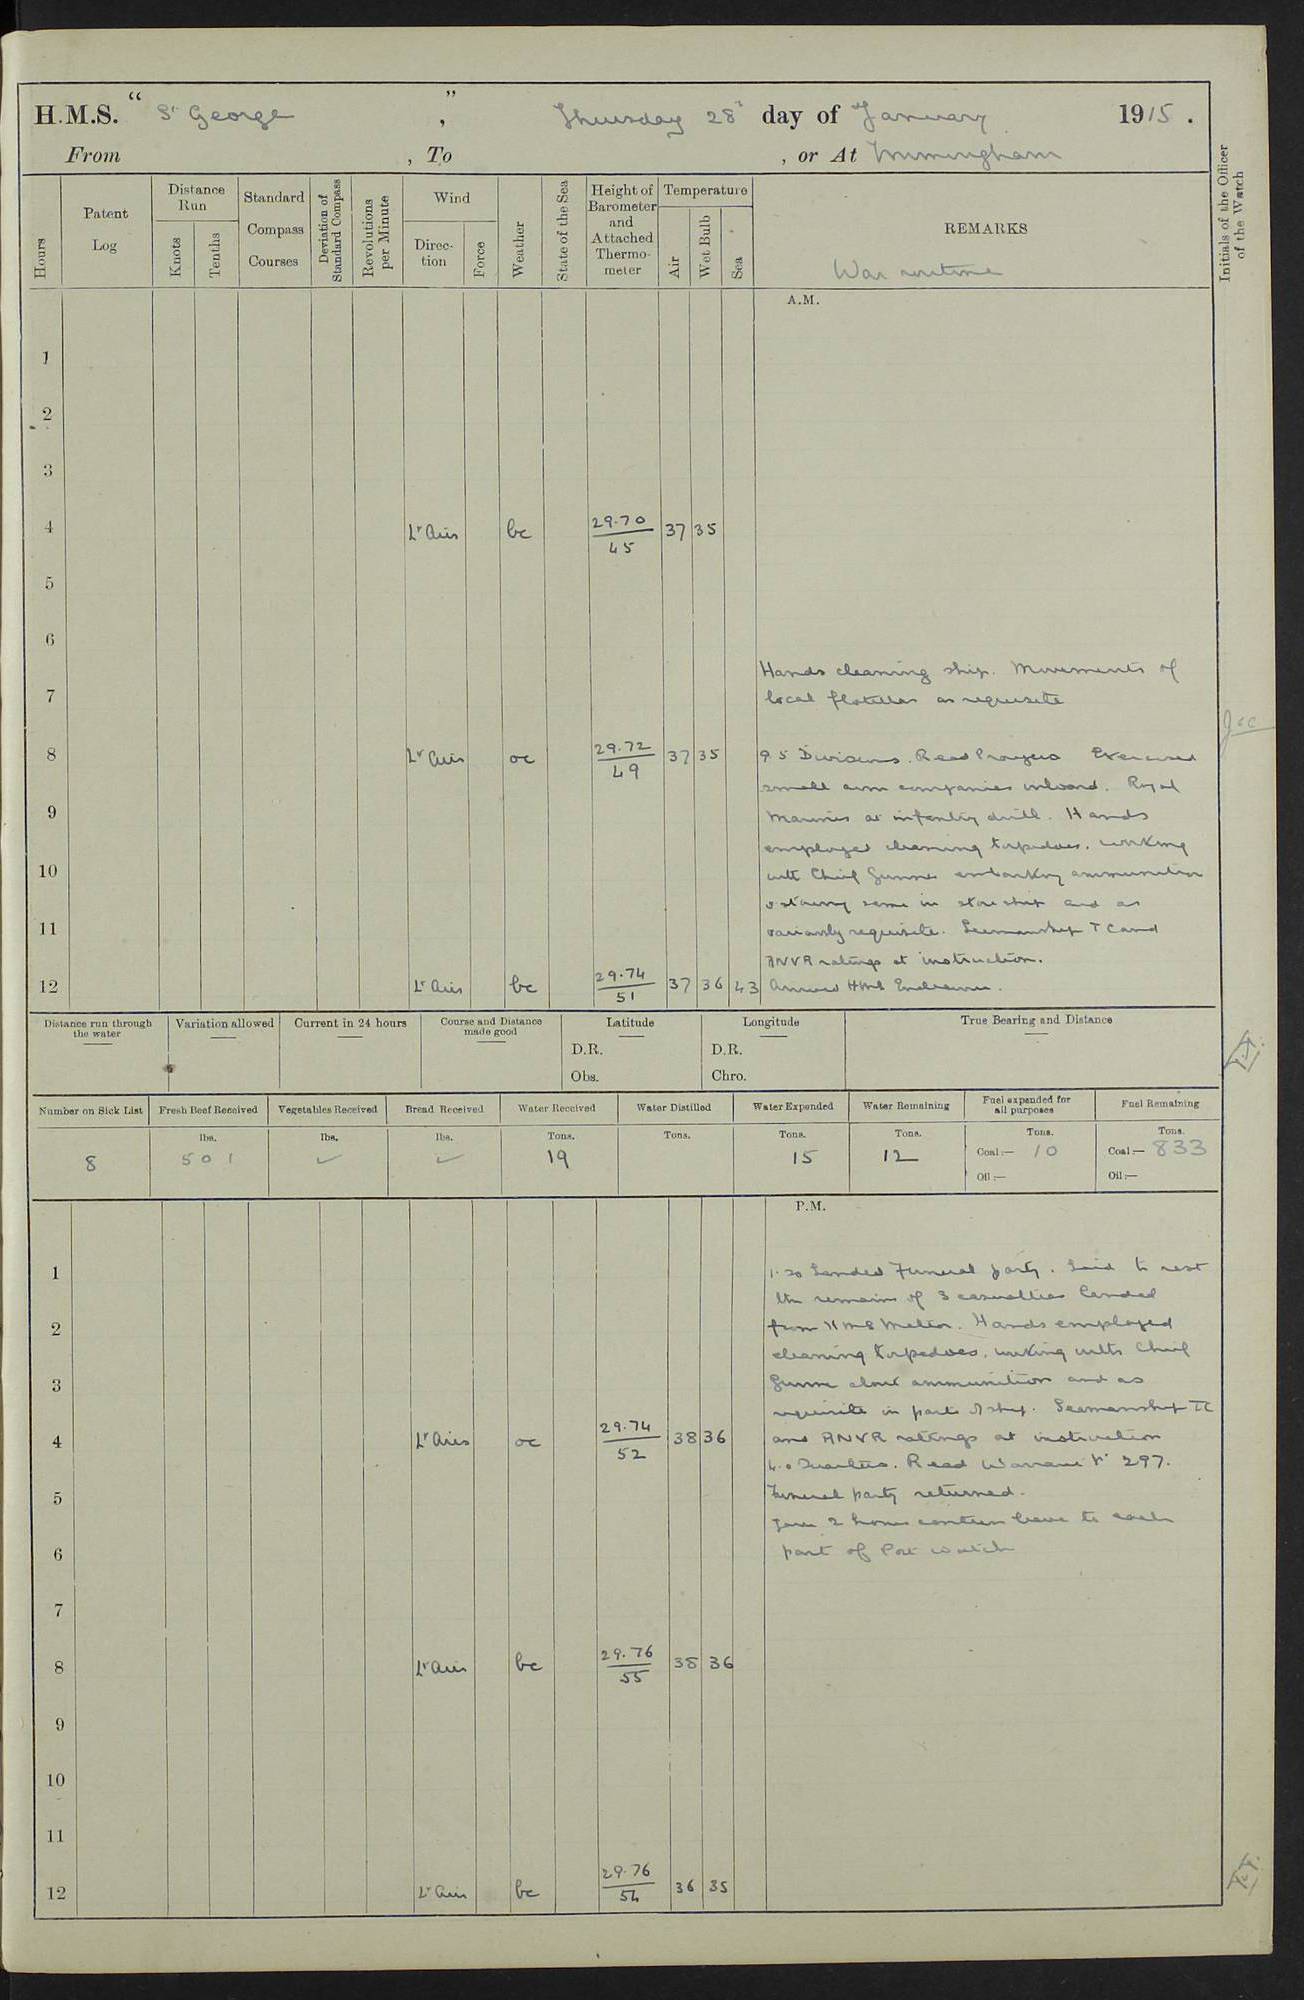 H.M.S. " St George ", Thursday 28th day of January 1915.
From , To , or At Immingham
Hours
Patent Log
Distance Run
Knots
Tenths
Standard Compass Courses
Deviation of Standard Compass
Revolutions per Minute
Wind
Direction
Force
Weather
State of the Sea
Height of Barometer and Attached Thermometer
Temperature
Air
Wet Bulb
Sea
REMARKS
War routine
Initials of the Officer of the Watch
A.M.
1
2
3
4 Lt Airs bc 29.70/45 37 35
5
6
Hands cleaning ship. Movements of
7 local flotillas as requisite
8 Lt Airs oc 29.72/49 37 35 9.5 Divisions. Read Prayers Exercised
small arm companies inboard. Royal
9 Marines at infantry drill. Hands
employed cleaning torpedoes, working
10 with Chief Gunner embarking ammunition
& stowing same in store ship and as
11 variously requisite. Seamanship TC and
RNVR ratings at instruction.
12 Lt Airs bc 29.74/51 37 36 43 Arrived HMS
Distance run through the water
Variation allowed
Current in 24 hours
Course and Distance made good
Latitude
D.R.
Obs.
Longitude
D.R.
Chro.
True Bearing and Distance
Number on Sick List
Fresh Beef Received
Vegetables Received
Bread Received
Water Received
Water Distilled
Water Expended
Water Remaining
Fuel expended for all purposes
Fuel Remaining
lbs. lbs. lbs. Tons. Tons. Tons. Tons. Tons. Tons.
8 501 ✓ ✓ 19 15 12 Coal:— 10 Coal:— 833
Oil:— Oil:—
P.M.
1 1.30 Landed Funeral party. Laid to rest
the remains of 3 casualties landed
2 from HMS Meteor. Hands employed
cleaning torpedoes, working with Chief
3 Gunner about ammunition and as
requisite in parts of ship. Seamanship TC
4 Lt Airs oc 29.74/52 38 36 and RNVR ratings at instruction
4.0 Quarters. Read Warrant No 297.
5 Funeral party returned.
Gave 2 hours canteen leave to each
6 part of Port watch
7
8 Lt Airs bc 29.76/55 38 36
9
10
11
12 Lt Airs bc 29.76/54 36 35